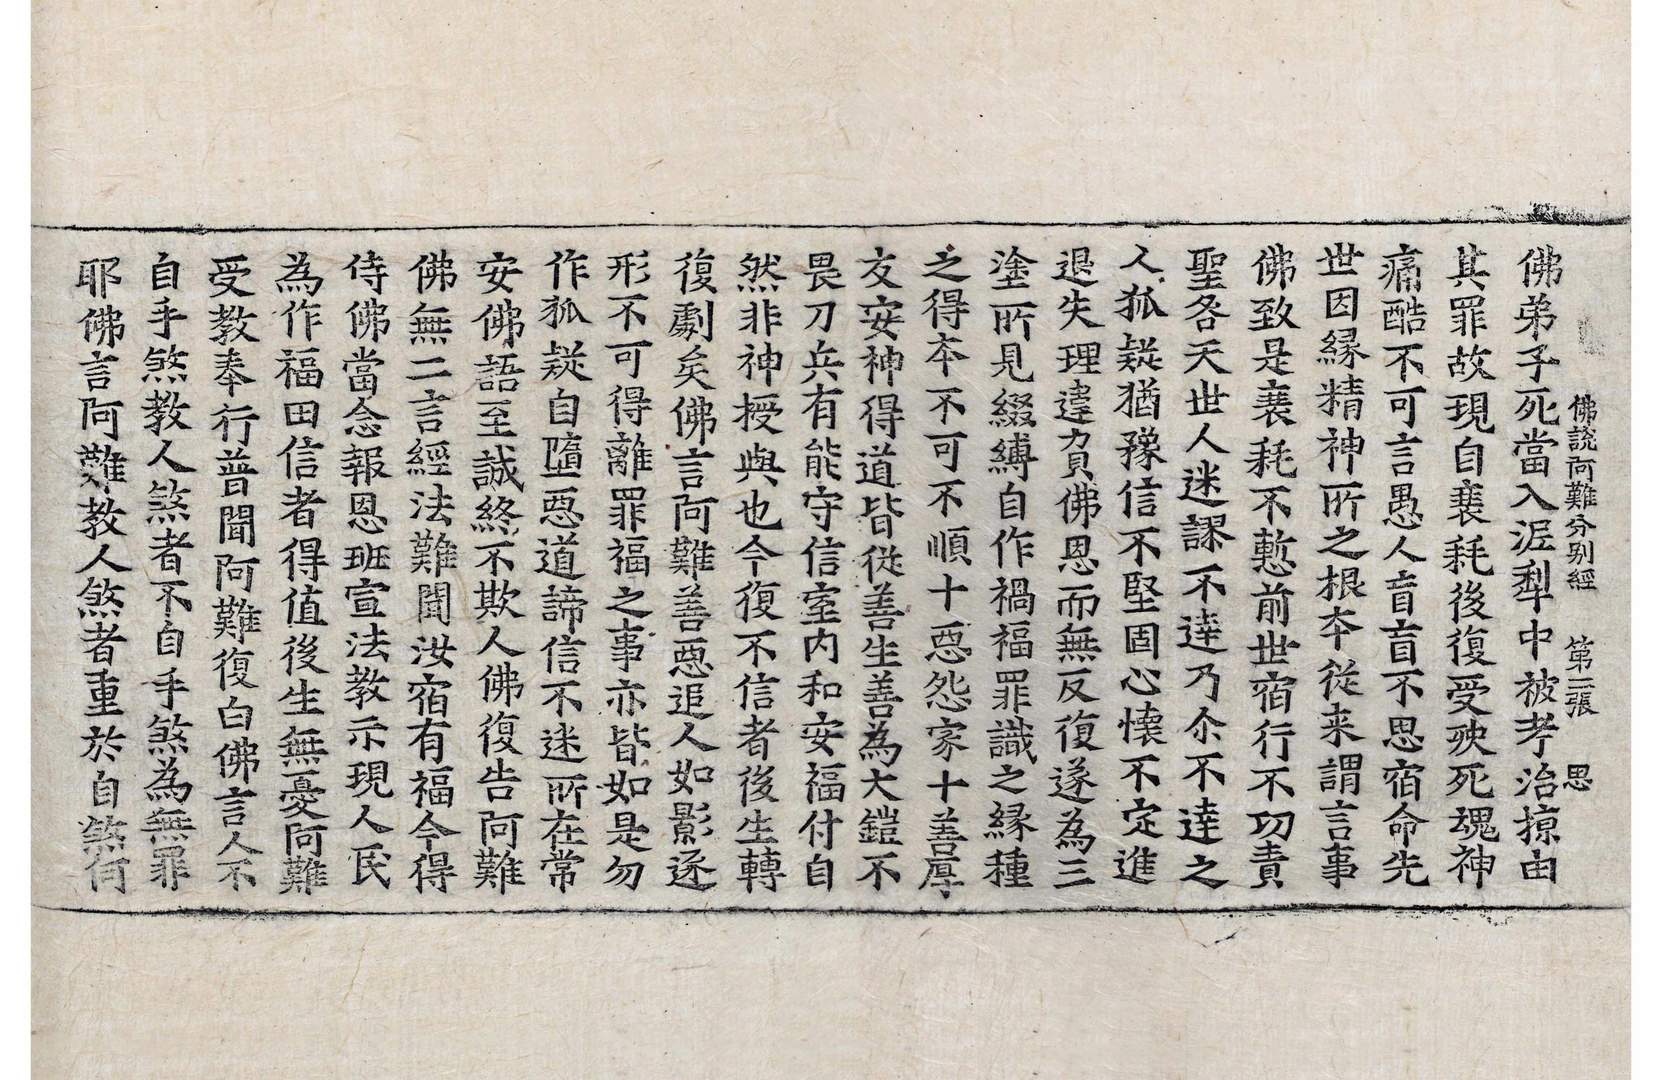 佛說阿難分别經 第二張 思
佛弟子死當入泥犁中被考治掠由
其罪故現自衰耗後復受殃死魂神
痛酷不可言愚人盲盲不思宿命先
世因緣精神所之根本從来謂言事
佛致是衰耗不慙前世宿行不功責
聖各天世人迷謬不達乃尒不達之
人狐疑猶豫信不堅固心懷不定進
退失理違負佛恩而無反復遂為三
塗所見綴縛自作禍福罪識之緣種
之得本不可不順十惡怨家十善厚
友安神得道皆從善生善為大鎧不
畏刀兵有能守信室內和安福付自
然非神授與也今復不信者後生轉
復劇矣佛言阿難善惡追人如影逐
形不可得離罪福之事亦皆如是勿
作狐疑自墮惡道諦信不迷所在常
安佛語至誠終不欺人佛復告阿難
佛無二言經法難聞汝宿有福今得
侍佛當念報恩班宣法教示現人民
為作福田信者得值後生無憂阿難
受教奉行普聞阿難復白佛言人不
自手煞教人煞者不自手煞為無罪
耶佛言阿難教人煞者重於自煞何